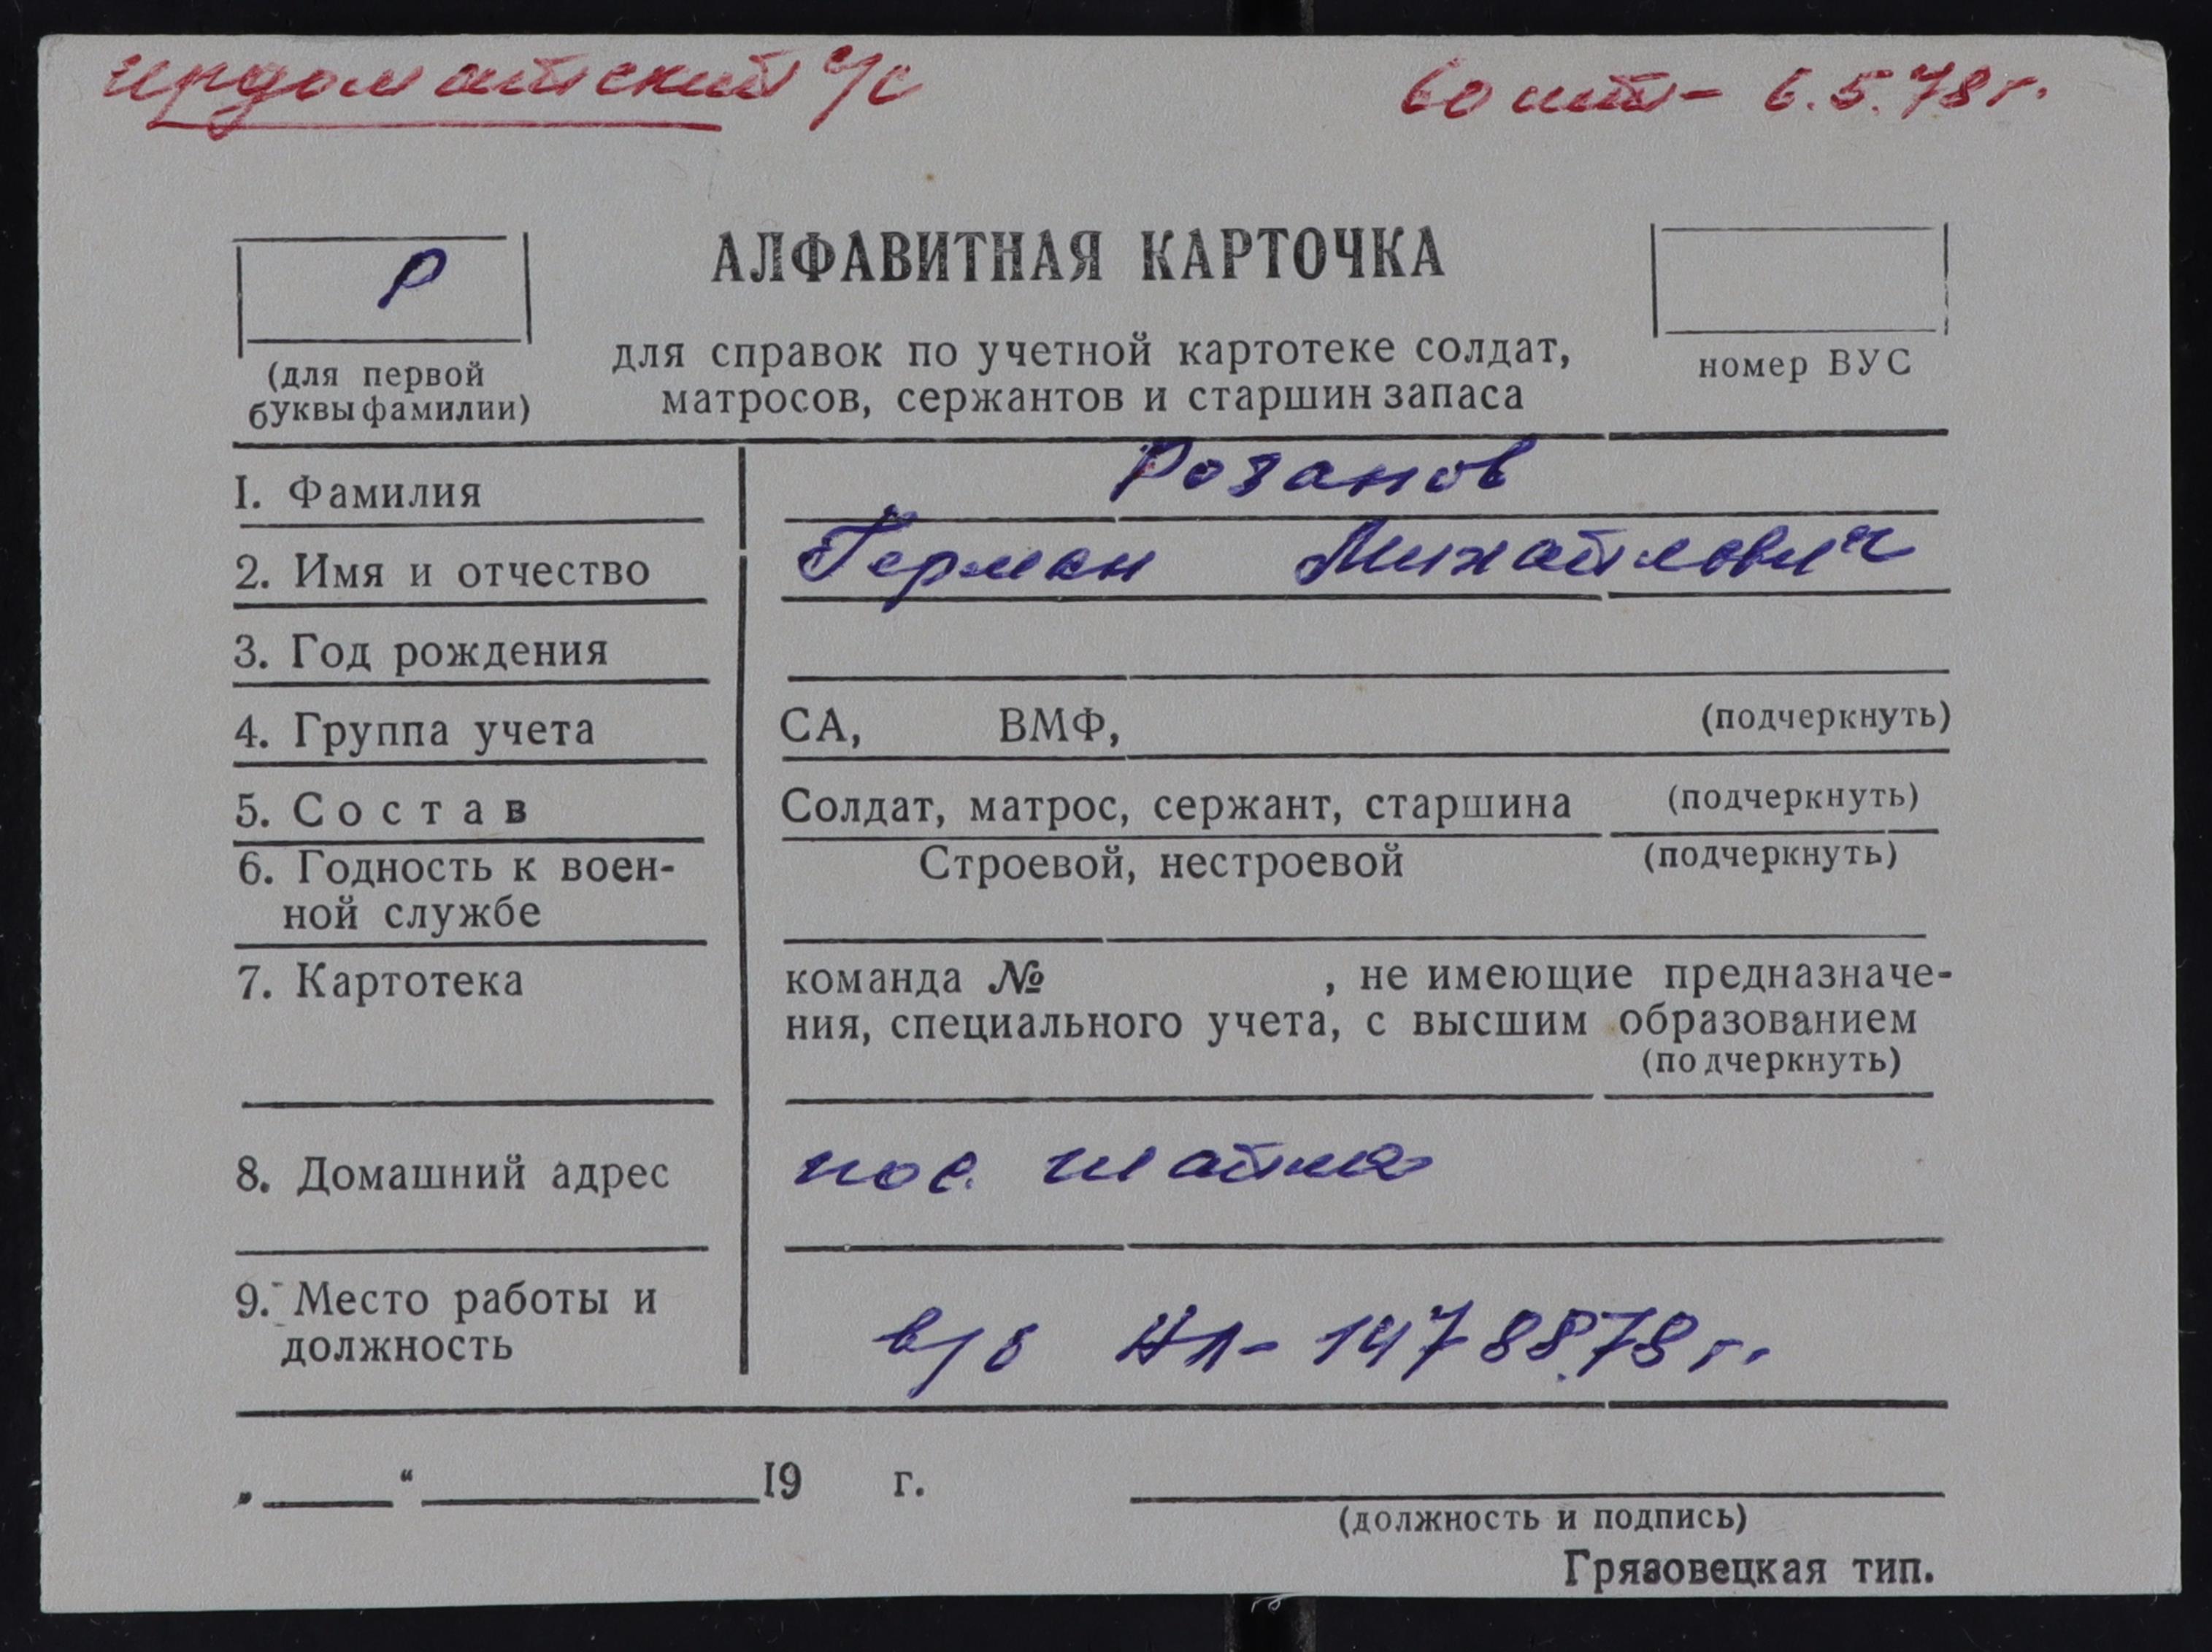 Ирдоматский с/с 60 шт - 6.5.78 г.
Р
АЛФАВИТНАЯ КАРТОЧКА
(для первой буквы фамилии)
для справок по учетной картотеке солдат,
матросов, сержантов и старшин запаса
номер ВУС
I. Фамилия Розанов
2. Имя и отчество Герман Михайлович
3. Год рождения
4. Группа учета СА, ВМФ, (подчеркнуть)
5. Состав Солдат, матрос, сержант, старшина (подчеркнуть)
6. Годность к воен- Строевой, нестроевой (подчеркнуть)
ной службе
7. Картотека команда № , не имеющие предназначе-
ния, специального учета, с высшим образованием
(подчеркнуть)
8. Домашний адрес пос. Шайма
9. Место работы и
должность в/б НЛ- 1478878 г.
„ “ I9 г.
(должность и подпись)
Грязовецкая тип.